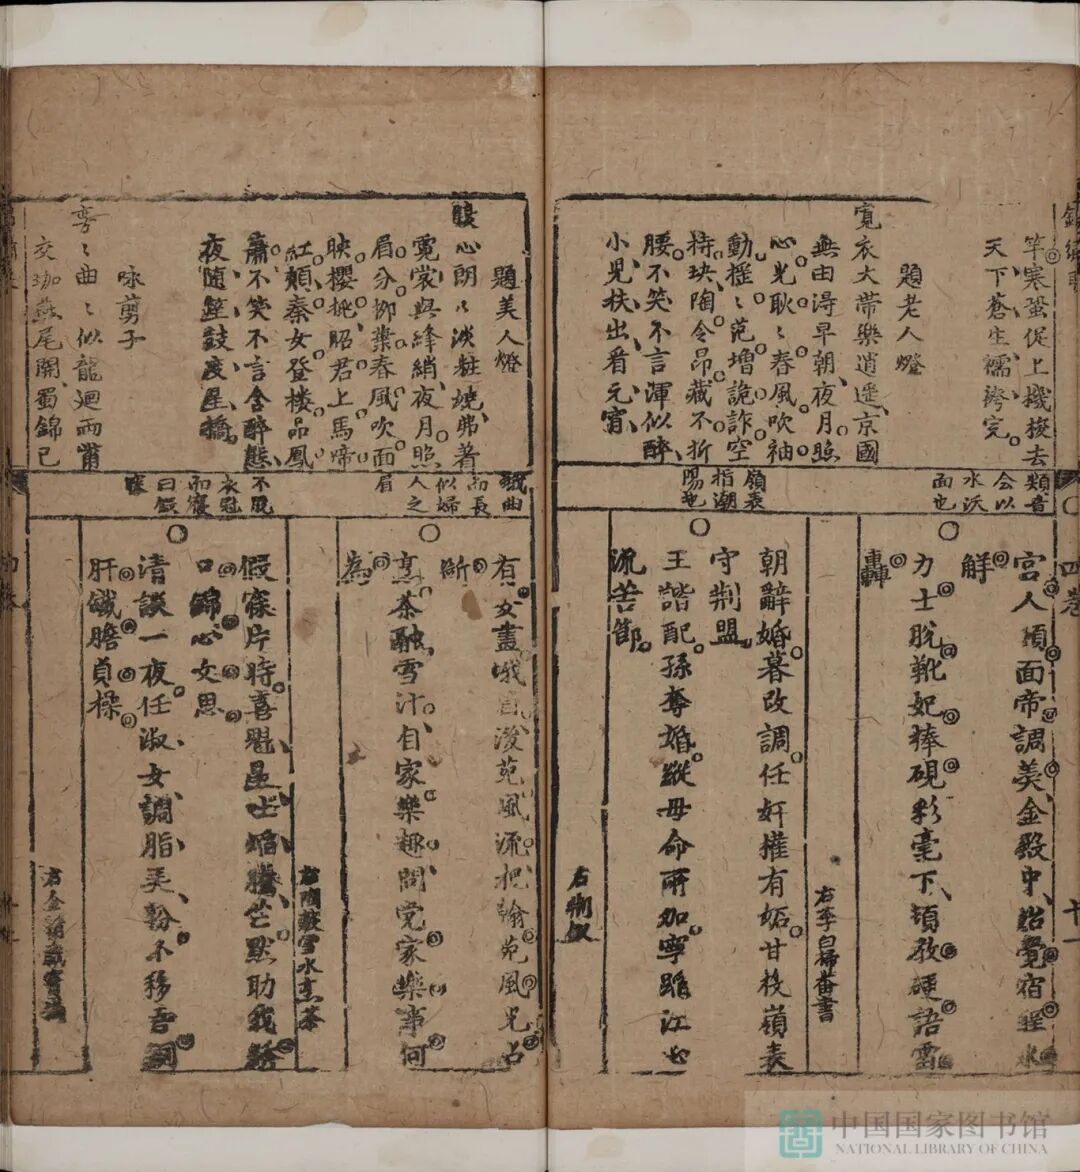 竿寒蛩促上機梭去
天下蒼生襦袴完
題老人燈
寬衣大帶樂逍遥京國
無由淂早朝夜月照
心光耿〻春風吹袖
動摇〻范增詭詐空
持玦陶令昂藏不折
腰不笑不言渾似醉
小児扶出看元宵
題美人燈
心朗〻淡粧燒弗著
霓裳與絳綃夜月照
眉分柳葉春風吹面
映櫻桃昭君上馬啼
紅頰秦女登楼品鳳
簫不笑不言含醉態
夜随鼓度星橋
咏剪子
弯〻曲〻似龍廻兩
交珈燕尾開蜀錦已
類音
合以
水沃
面也
嶺表
指潮
陽也
曲
而長
似婦
人之
眉
不脱
衣冠
而寢
曰假
寐
四卷
十一
宮人頮面帝調羮金殿中詔覺宿酲水
觧
力士脫靴妃捧硯彩毫下頃教硬語雷
轟
右李白掃蕃書
朝辭婚暮改調任奸權有妬甘投嶺表
守荆盟
王諧配孫奪婚縱毋命兩加寧蹈江心
流苦節
右荆釵
有女畫蛾眉浚苑風流把翰苑風光占
斷
烹茶融雪汁自家樂趣問党家樂事何
為
右陶穀雪水烹茶
假寐片時喜魁星士焰騰芒默助我
口錦心文思
清談一夜任淑女調脂美粉不移吾
肝鐵膽貞操